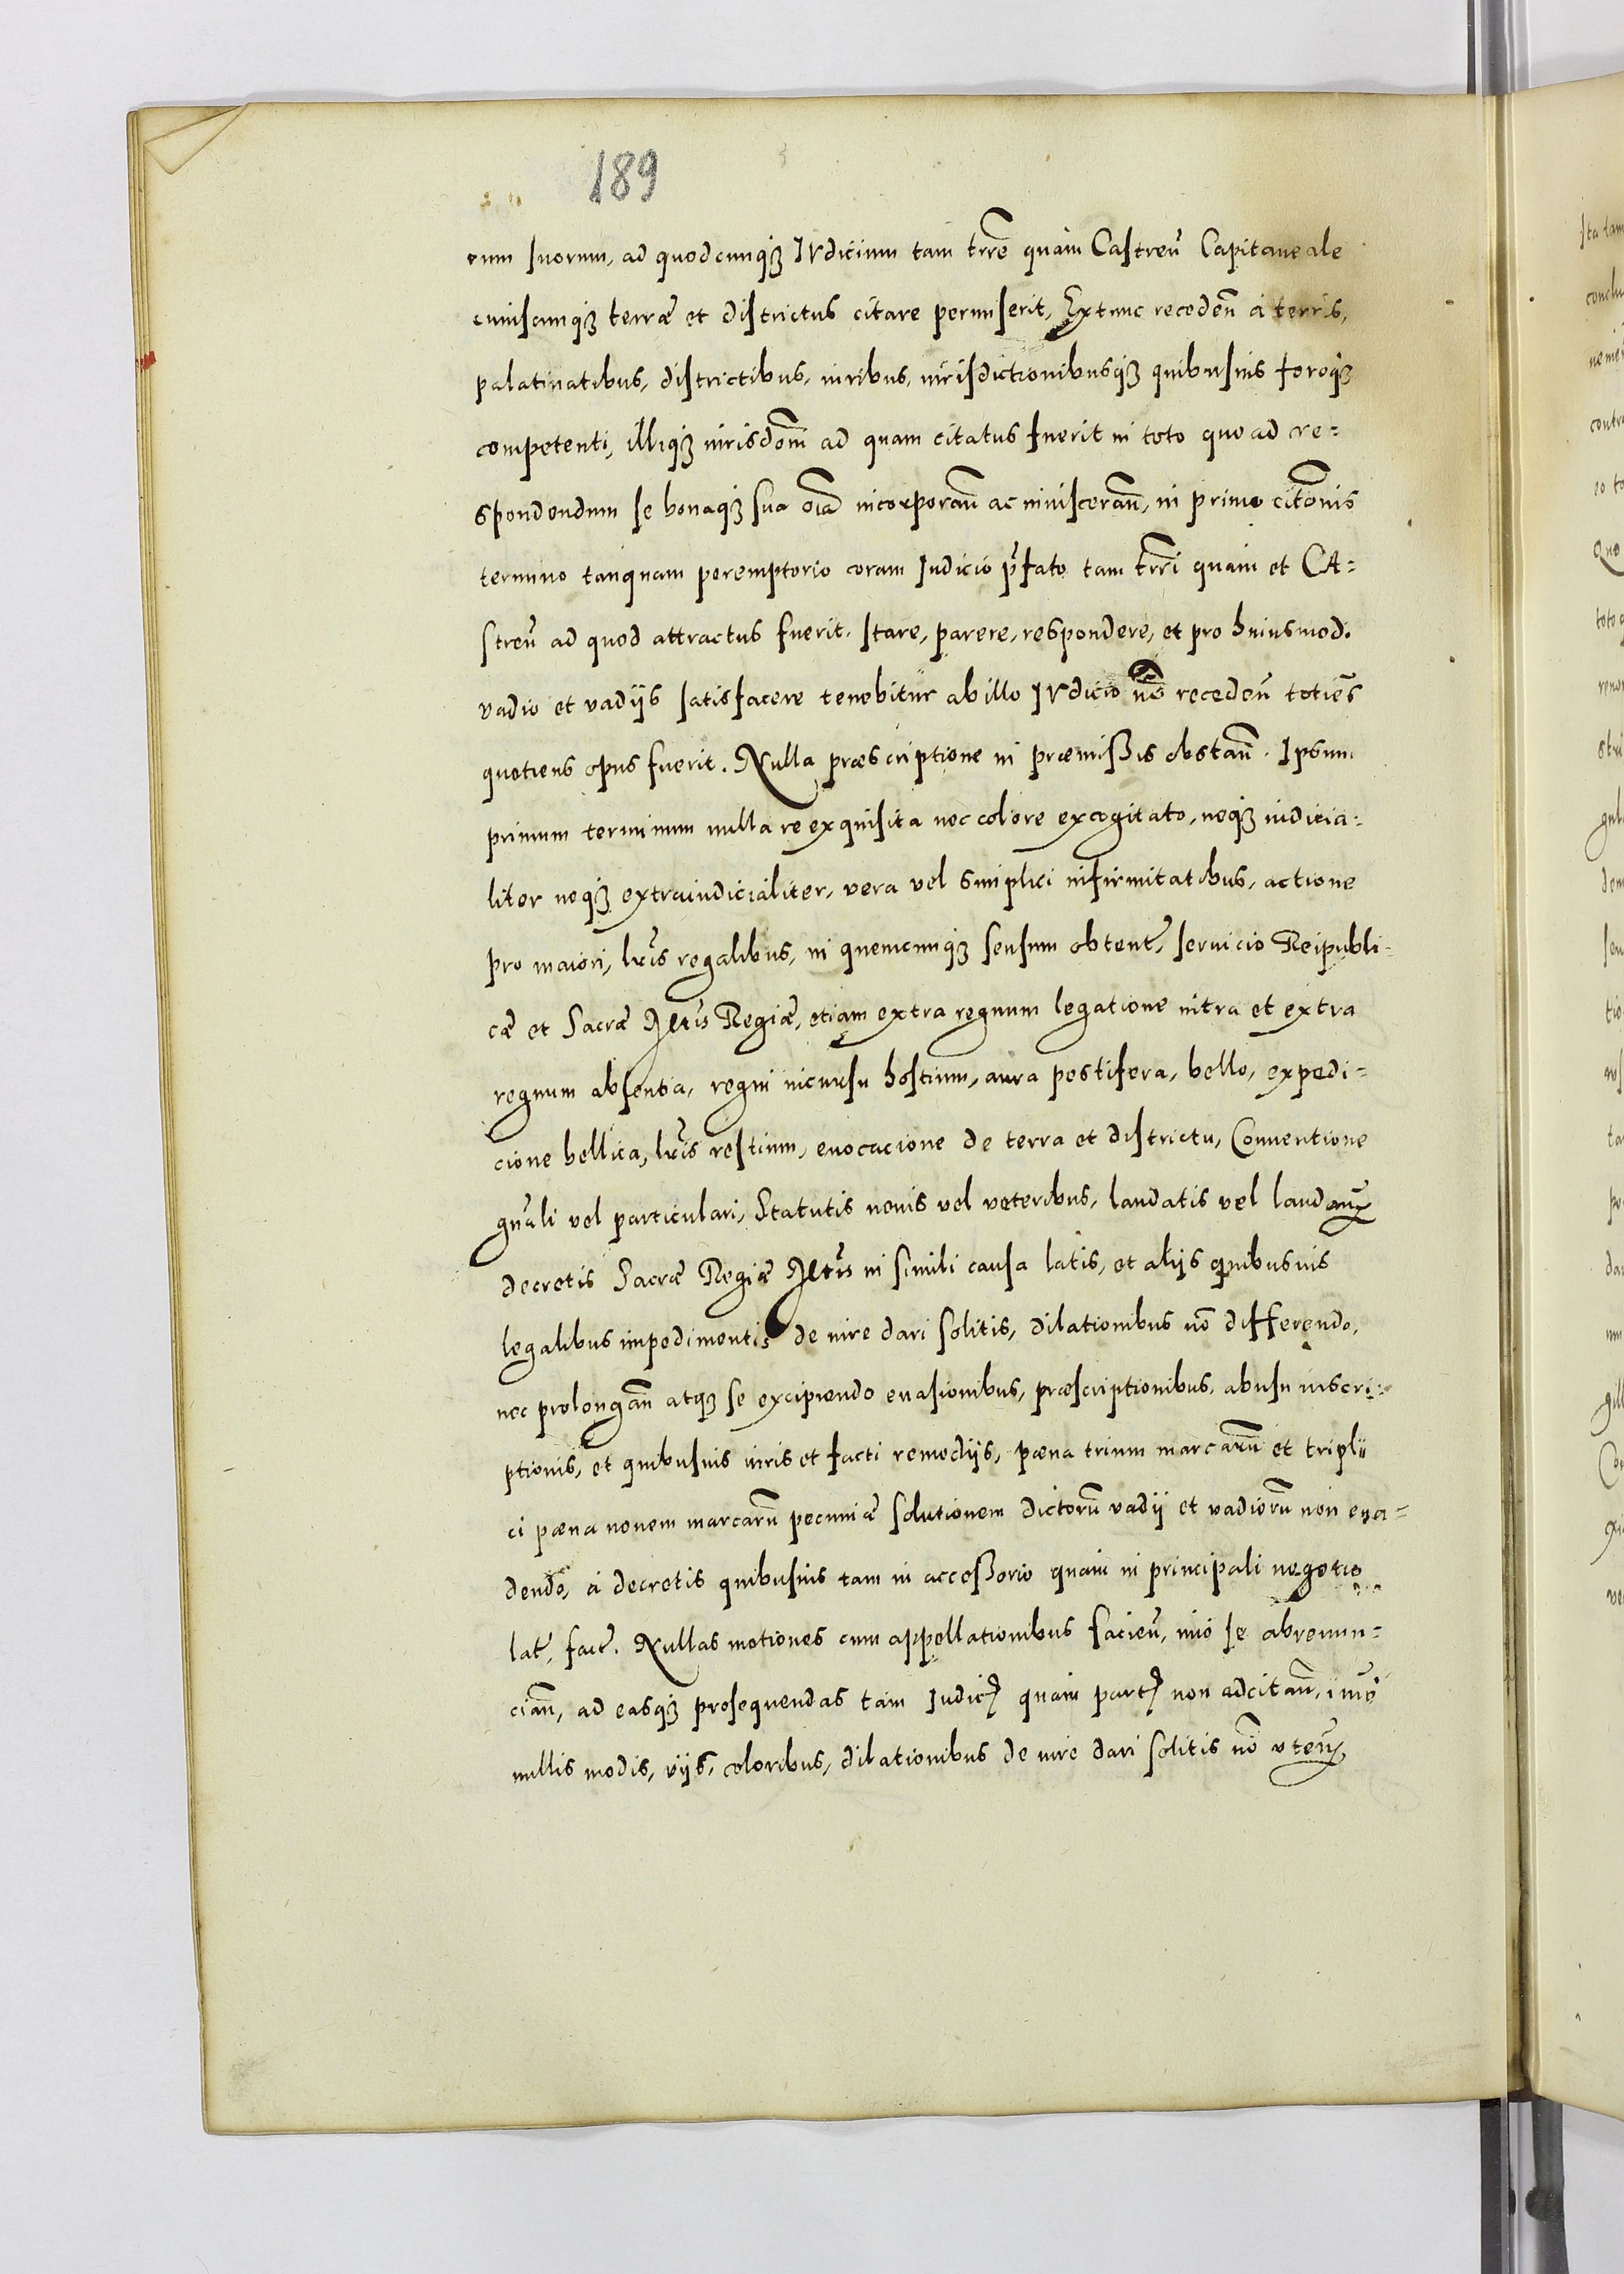 189
eum suorum, ad quodcunqȝ IVdicium tam trre̅ quàm Castren̅ Capitaneale
cuiuscunqȝ terræ et districtus citare permiserit, Extunc receden̅ à terris,
palatinatibus, districtibus, iuribus, iurisdictionibusqȝ quibusuis foroqȝ
competenti, illiqȝ iurisdom̅ ad quam citatus fuerit in toto quo ad re=
spondendum se bonaqȝ sua oīa incorporan̅ ac inuisceran̅, in primo citōnis
termino tanquam peremptorio coram Iudicio p̄fato tam trri̅ quàm et CA=
stren̅ ad quod attractus fuerit. stare, parere, respondere, et pro huiusmodi
vadio et vadijs satisfacere tenebitur ab illo IVdicio nō receden̅ totiēs
quotiens opus fuerit. Nulla præscriptione in præmissis obstan̅. Ipsum
primum terminum nulla re exquisita nec colore excogitato, neqȝ iudicia=
liter neqȝ extraiudicialiter, vera vel simplici infirmitatibus, actione
pro maiori, lrīs regalibus, in quemcunqȝ sensum obtent̅, seruicio Reipubli=
cæ et Sacræ Mtīs Regiæ, etiam extra regnum legatione intra et extra
regnum absentia, regni incursu hostium, aura pestifera, bello, expedi=
cione bellica, lrīs restium, euocacione de terra et districtu, Conuentione
gn̅ali vel particulari, Statutis nouis vel veteribus, laudatis vel laudan̅
decretis Sacræ Regiæ Mtīs in simili causa latis, et alijs quibusuis
legalibus impedimentis de iure dari solitis, dilationibus nō differendo,
nec prolongan̅ atqȝ se excipiendo euasionibus, præscriptionibus, abusu inscri=
ptionis, et quibusuis iuris et facti remedijs, pæna trium marcarū et tripli
ci pæna nouem marcarū pecuniæ solutionem dictorū vadij et vadiorū non eua=
dendo, à decretis quibusuis tam in accessorio quàm in principali negotio
lat̅, fact̅. Nullas motiones cum appellationibus facien̅, imò se abrenun=
cian̅, ad easqȝ prosequendas tam Iudicȩ quàm partȩ non adcitan̅, imò
nullis modis, vijs, coloribus, dilationibus de iure dari solitis nō vten̅